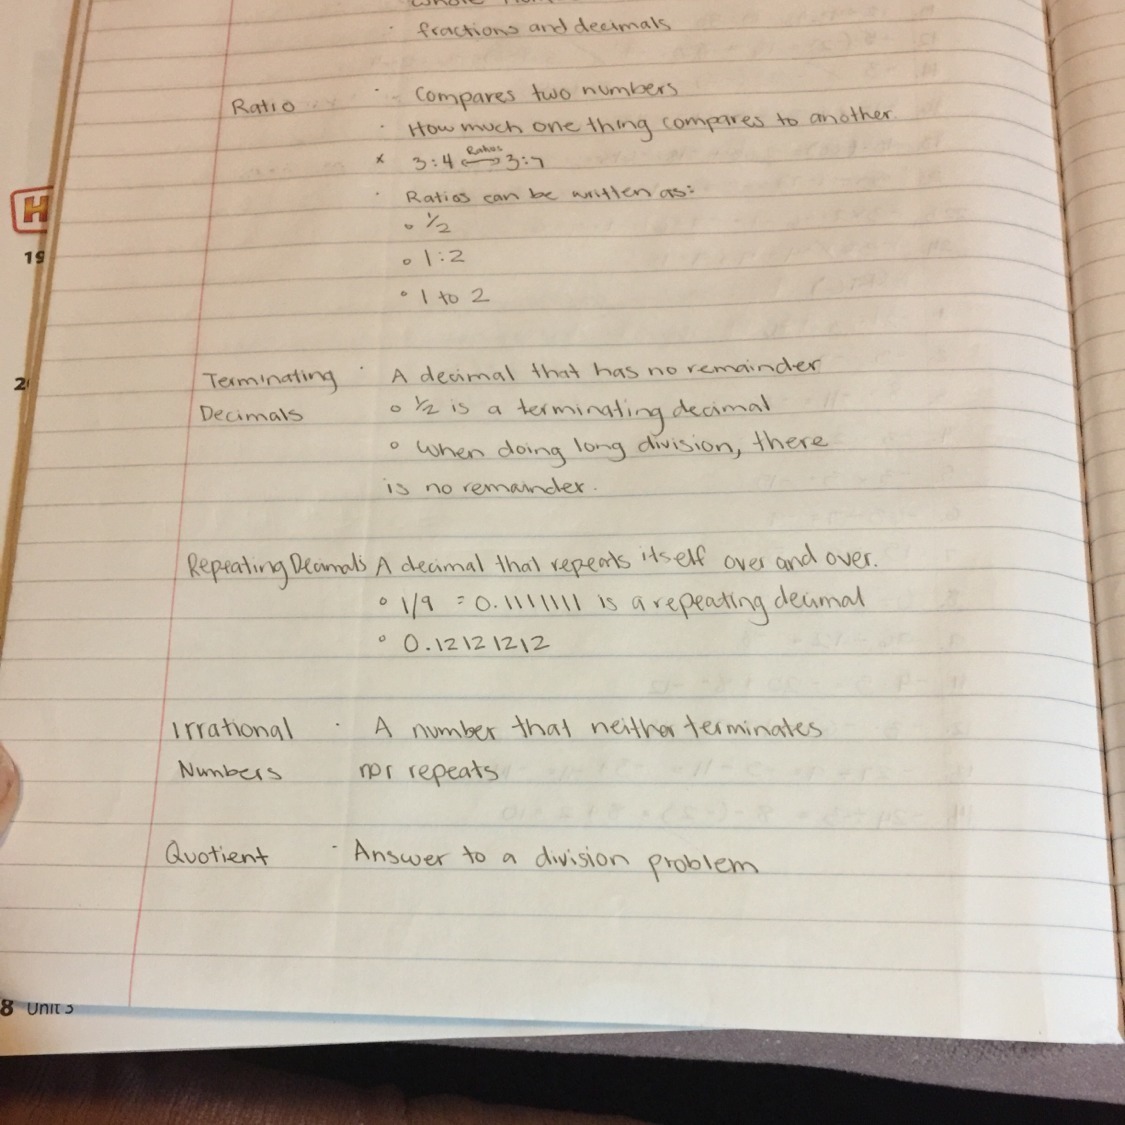 fractions and decimals
Ratio - Compares two numbers
How much one thing compares to another.
Ratios
x 3:4 ⟷ 3:7
Ratios can be written as:
1/2
1:2
1 to 2
H
19
Terminating A decimal that has no remainder
2
Decimals 1/2 is a terminating decimal
When doing long division, there
is no remainder.
Repeating Decimals A decimal that repeats itself over and over.
1/9 = 0.1111111 is a repeating decimal
0.12121212
Irrational A number that neither terminates
Numbers nor repeats
Quotient - Answer to a division problem
8 Unit 3